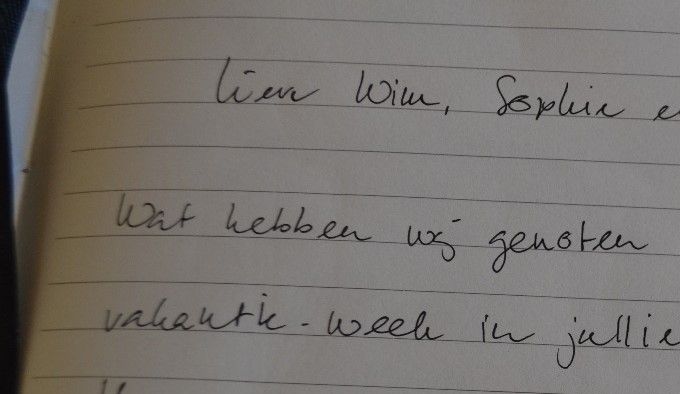 Lieve Wim, Sophie e
Wat hebben wij genoten
vakantie-week in jullie